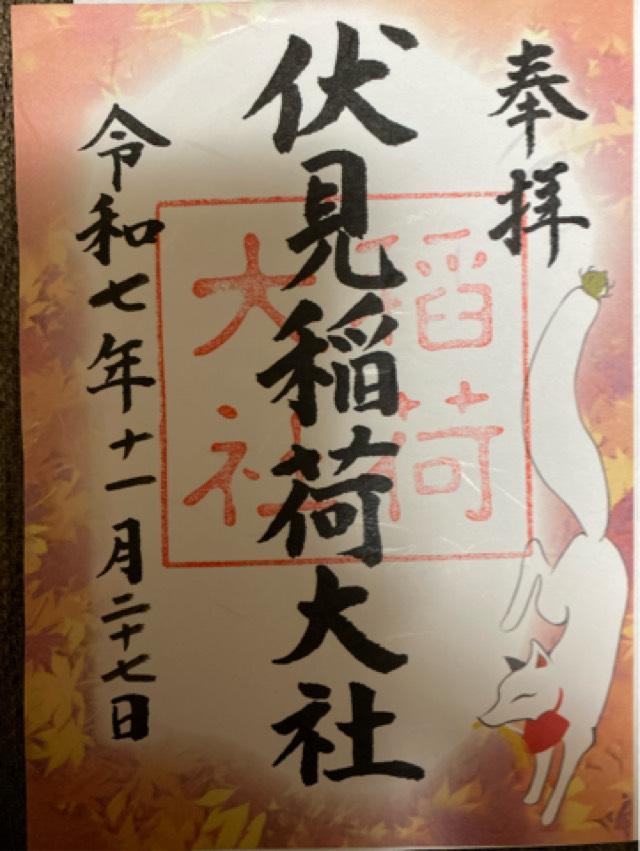 奉拝
伏見稲荷大社
令和七年十一月二十七日
稲荷
大社